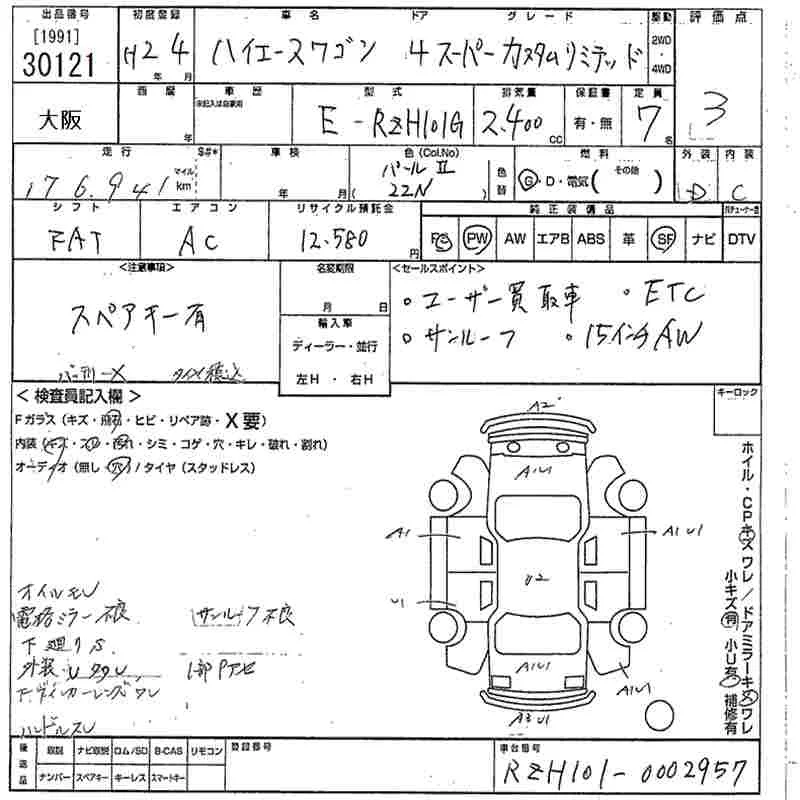 出品番号 初度登録 車名 ドア グレード 駆動 評価点
[1991]
30121 H2 4 年 月 ハイエースワゴン 4 スーパーカスタムリミテッド 2WD ・ 4WD 3
西暦 車歴 型式 排気量 保証書 定員
未記入は自家用
大阪 年 E-RZH101G 2.400 cc 有・無 7 名
走行 $#* 車検 色(Col.No) 燃料 外装 内装
176.941 マイル km 年 月 パールⅡ 色替 G・D・電気( その他 ) D C
( 22N )
シフト エアコン リサイクル預託金 純正装備品
FAT AC 12.580 円 PS PW AW エアB ABS 革 SR ナビ DTV
<注意事項> 名変期限 <セールスポイント>
スペアキー有 月 日 ・ユーザー買取車 ・ETC
輸入車 ・サンルーフ ・15インチAW
ディーラー・並行
バッテリーX タイヤ積込 左H ・ 右H
< 検査員記入欄 > キーロック
Fガラス (キズ・飛石・ヒビ・リペア跡・X要)
内装 (キズ・スレ・汚れ・シミ・コゲ・穴・キレ・破れ・割れ)
オーディオ (無し・穴) / タイヤ (スタッドレス)
A2
A1U1
A1
A1U1
U2
U1
A1U1
A1U1
A3U1
ホイル・CPキズ ワレ/ドアミラーキズ ワレ
小キズ有 小U有 補修有
オイルモレ
電格ミラー不良 サンルーフ不良
下廻りS
外装 1部Pアセ
ハンドルスレ
後送品 取説 ナビ取説 ロム/SD B-CAS リモコン 登録番号 車台番号
ナンバー スペアキー キーレス スマートキー RZH101-0002957